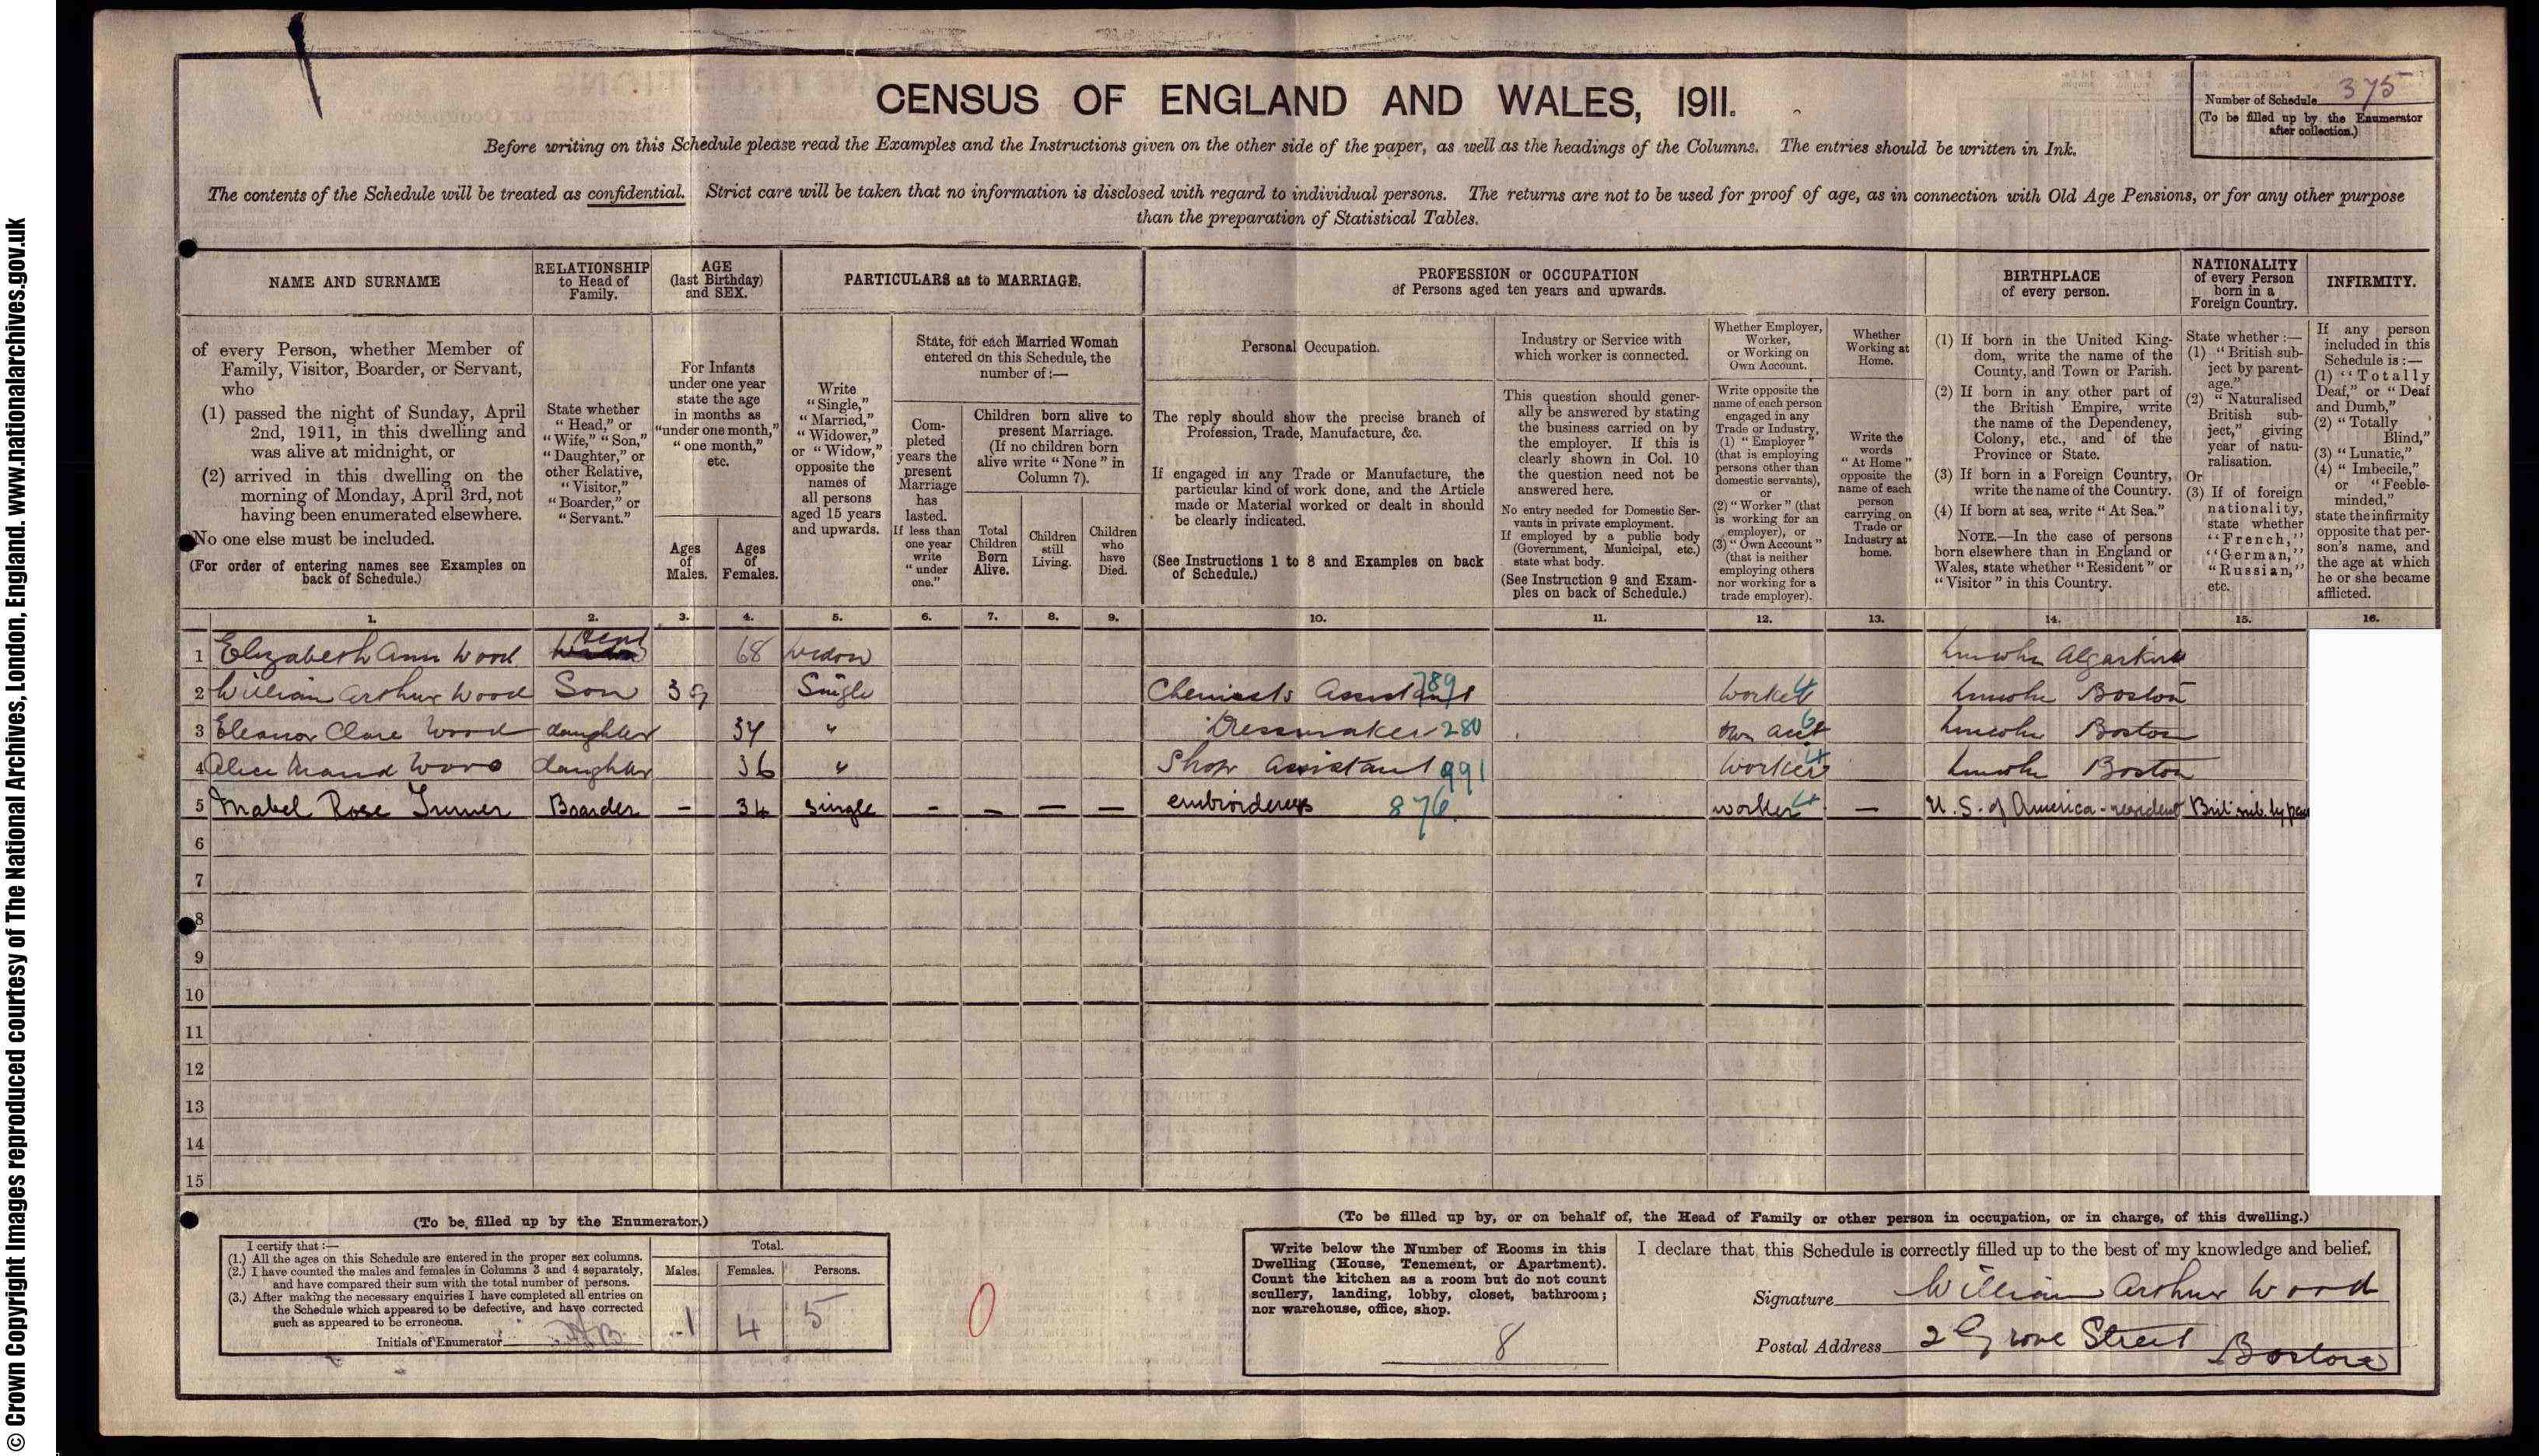 © Crown Copyright Images reproduced courtesy of The National Archives, London, England. www.nationalarchives.gov.uk
CENSUS OF ENGLAND AND WALES, 1911.
Number of Schedule 375
(To be filled up by the Enumerator
after collection.)
Before writing on this Schedule please read the Examples and the Instructions given on the other side of the paper, as well as the headings of the Columns. The entries should be written in Ink.
The contents of the Schedule will be treated as confidential. Strict care will be taken that no information is disclosed with regard to individual persons. The returns are not to be used for proof of age, as in connection with Old Age Pensions, or for any other purpose
than the preparation of Statistical Tables.
NAME AND SURNAME
of every Person, whether Member of
Family, Visitor, Boarder, or Servant,
who
(1) passed the night of Sunday, April
2nd, 1911, in this dwelling and
was alive at midnight, or
(2) arrived in this dwelling on the
morning of Monday, April 3rd, not
having been enumerated elsewhere.
No one else must be included.
(For order of entering names see Examples on
back of Schedule.)
RELATIONSHIP
to Head of
Family.
State whether
"Head," or
"Wife," "Son,"
"Daughter," or
other Relative,
"Visitor,"
"Boarder," or
"Servant."
AGE
(last Birthday)
and SEX.
For Infants
under one year
state the age
in months as
"under one month,"
"one month,"
etc.
Ages
of
Males.
Ages
of
Females.
PARTICULARS as to MARRIAGE.
Write
"Single,"
"Married,"
"Widower,"
or "Widow,"
opposite the
names of
all persons
aged 15 years
and upwards.
State, for each Married Woman
entered on this Schedule, the
number of:—
Com-
pleted
years the
present
Marriage
has
lasted.
If less than
one year
write
"under
one."
Children born alive to
present Marriage.
(If no children born
alive write "None" in
Column 7).
Total
Children
Born
Alive.
Children
still
Living.
Children
who
have
Died.
PROFESSION or OCCUPATION
of Persons aged ten years and upwards.
Personal Occupation.
The reply should show the precise branch of
Profession, Trade, Manufacture, &c.
If engaged in any Trade or Manufacture, the
particular kind of work done, and the Article
made or Material worked or dealt in should
be clearly indicated.
(See Instructions 1 to 8 and Examples on back
of Schedule.)
Industry or Service with
which worker is connected.
This question should gener-
ally be answered by stating
the business carried on by
the employer. If this is
clearly shown in Col. 10
the question need not be
answered here.
No entry needed for Domestic Ser-
vants in private employment.
If employed by a public body
(Government, Municipal, etc.)
state what body.
(See Instruction 9 and Exam-
ples on back of Schedule.)
Whether Employer,
Worker,
or Working on
Own Account.
Write opposite the
name of each person
engaged in any
Trade or Industry,
(1) "Employer"
(that is employing
persons other than
domestic servants),
or
(2) "Worker" (that
is working for an
employer), or
(3) "Own Account"
(that is neither
employing others
nor working for a
trade employer).
Whether
Working at
Home.
Write the
words
"At Home"
opposite the
name of each
person
carrying on
Trade or
Industry at
home.
BIRTHPLACE
of every person.
(1) If born in the United King-
dom, write the name of the
County, and Town or Parish.
(2) If born in any other part of
the British Empire, write
the name of the Dependency,
Colony, etc., and of the
Province or State.
(3) If born in a Foreign Country,
write the name of the Country.
(4) If born at sea, write "At Sea."
NOTE.—In the case of persons
born elsewhere than in England or
Wales, state whether "Resident" or
"Visitor" in this Country.
NATIONALITY
of every Person
born in a
Foreign Country.
State whether:—
(1) "British sub-
ject by parent-
age."
(2) "Naturalised
British sub-
ject," giving
year of natu-
ralisation.
Or
(3) If of foreign
nationality,
state whether
"French,"
"German,"
"Russian,"
etc.
INFIRMITY.
If any person
included in this
Schedule is:—
(1) "Totally
Deaf," or "Deaf
and Dumb,"
(2) "Totally
Blind,"
(3) "Lunatic,"
(4) "Imbecile,"
or "Feeble-
minded,"
state the infirmity
opposite that per-
son's name, and
the age at which
he or she became
afflicted.
1. 2. 3. 4. 5. 6. 7. 8. 9. 10. 11. 12. 13. 14. 15. 16.
1 Elizabeth Ann Wood Head 68 Widow Lincoln Algarkirk
2 William Arthur Wood Son 39 Single Chemists Assistant 789 Worker 4 Lincoln Boston
3 Eleanor Clare Wood daughter 37 " Dressmaker 280 Own acct 6 Lincoln Boston
4 Alice Maud Wood daughter 36 " Shop Assistant 991 Worker 4 Lincoln Boston
5 Mabel Rose Turner Boarder - 34 single - - - - embroideress 876 worker 4 - U.S. of America - resident Brit. sub. by
6
7
8
9
10
11
12
13
14
15
(To be filled up by the Enumerator.)
I certify that:—
(1.) All the ages on this Schedule are entered in the proper sex columns.
(2.) I have counted the males and females in Columns 3 and 4 separately,
and have compared their sum with the total number of persons.
(3.) After making the necessary enquiries I have completed all entries on
the Schedule which appeared to be defective, and have corrected
such as appeared to be erroneous.
Initials of Enumerator
Total.
Males. Females. Persons.
1 4 5
0
(To be filled up by, or on behalf of, the Head of Family or other person in occupation, or in charge, of this dwelling.)
Write below the Number of Rooms in this
Dwelling (House, Tenement, or Apartment).
Count the kitchen as a room but do not count
scullery, landing, lobby, closet, bathroom;
nor warehouse, office, shop.
8
I declare that this Schedule is correctly filled up to the best of my knowledge and belief.
Signature William Arthur Wood
Postal Address 2 Grove Street Boston